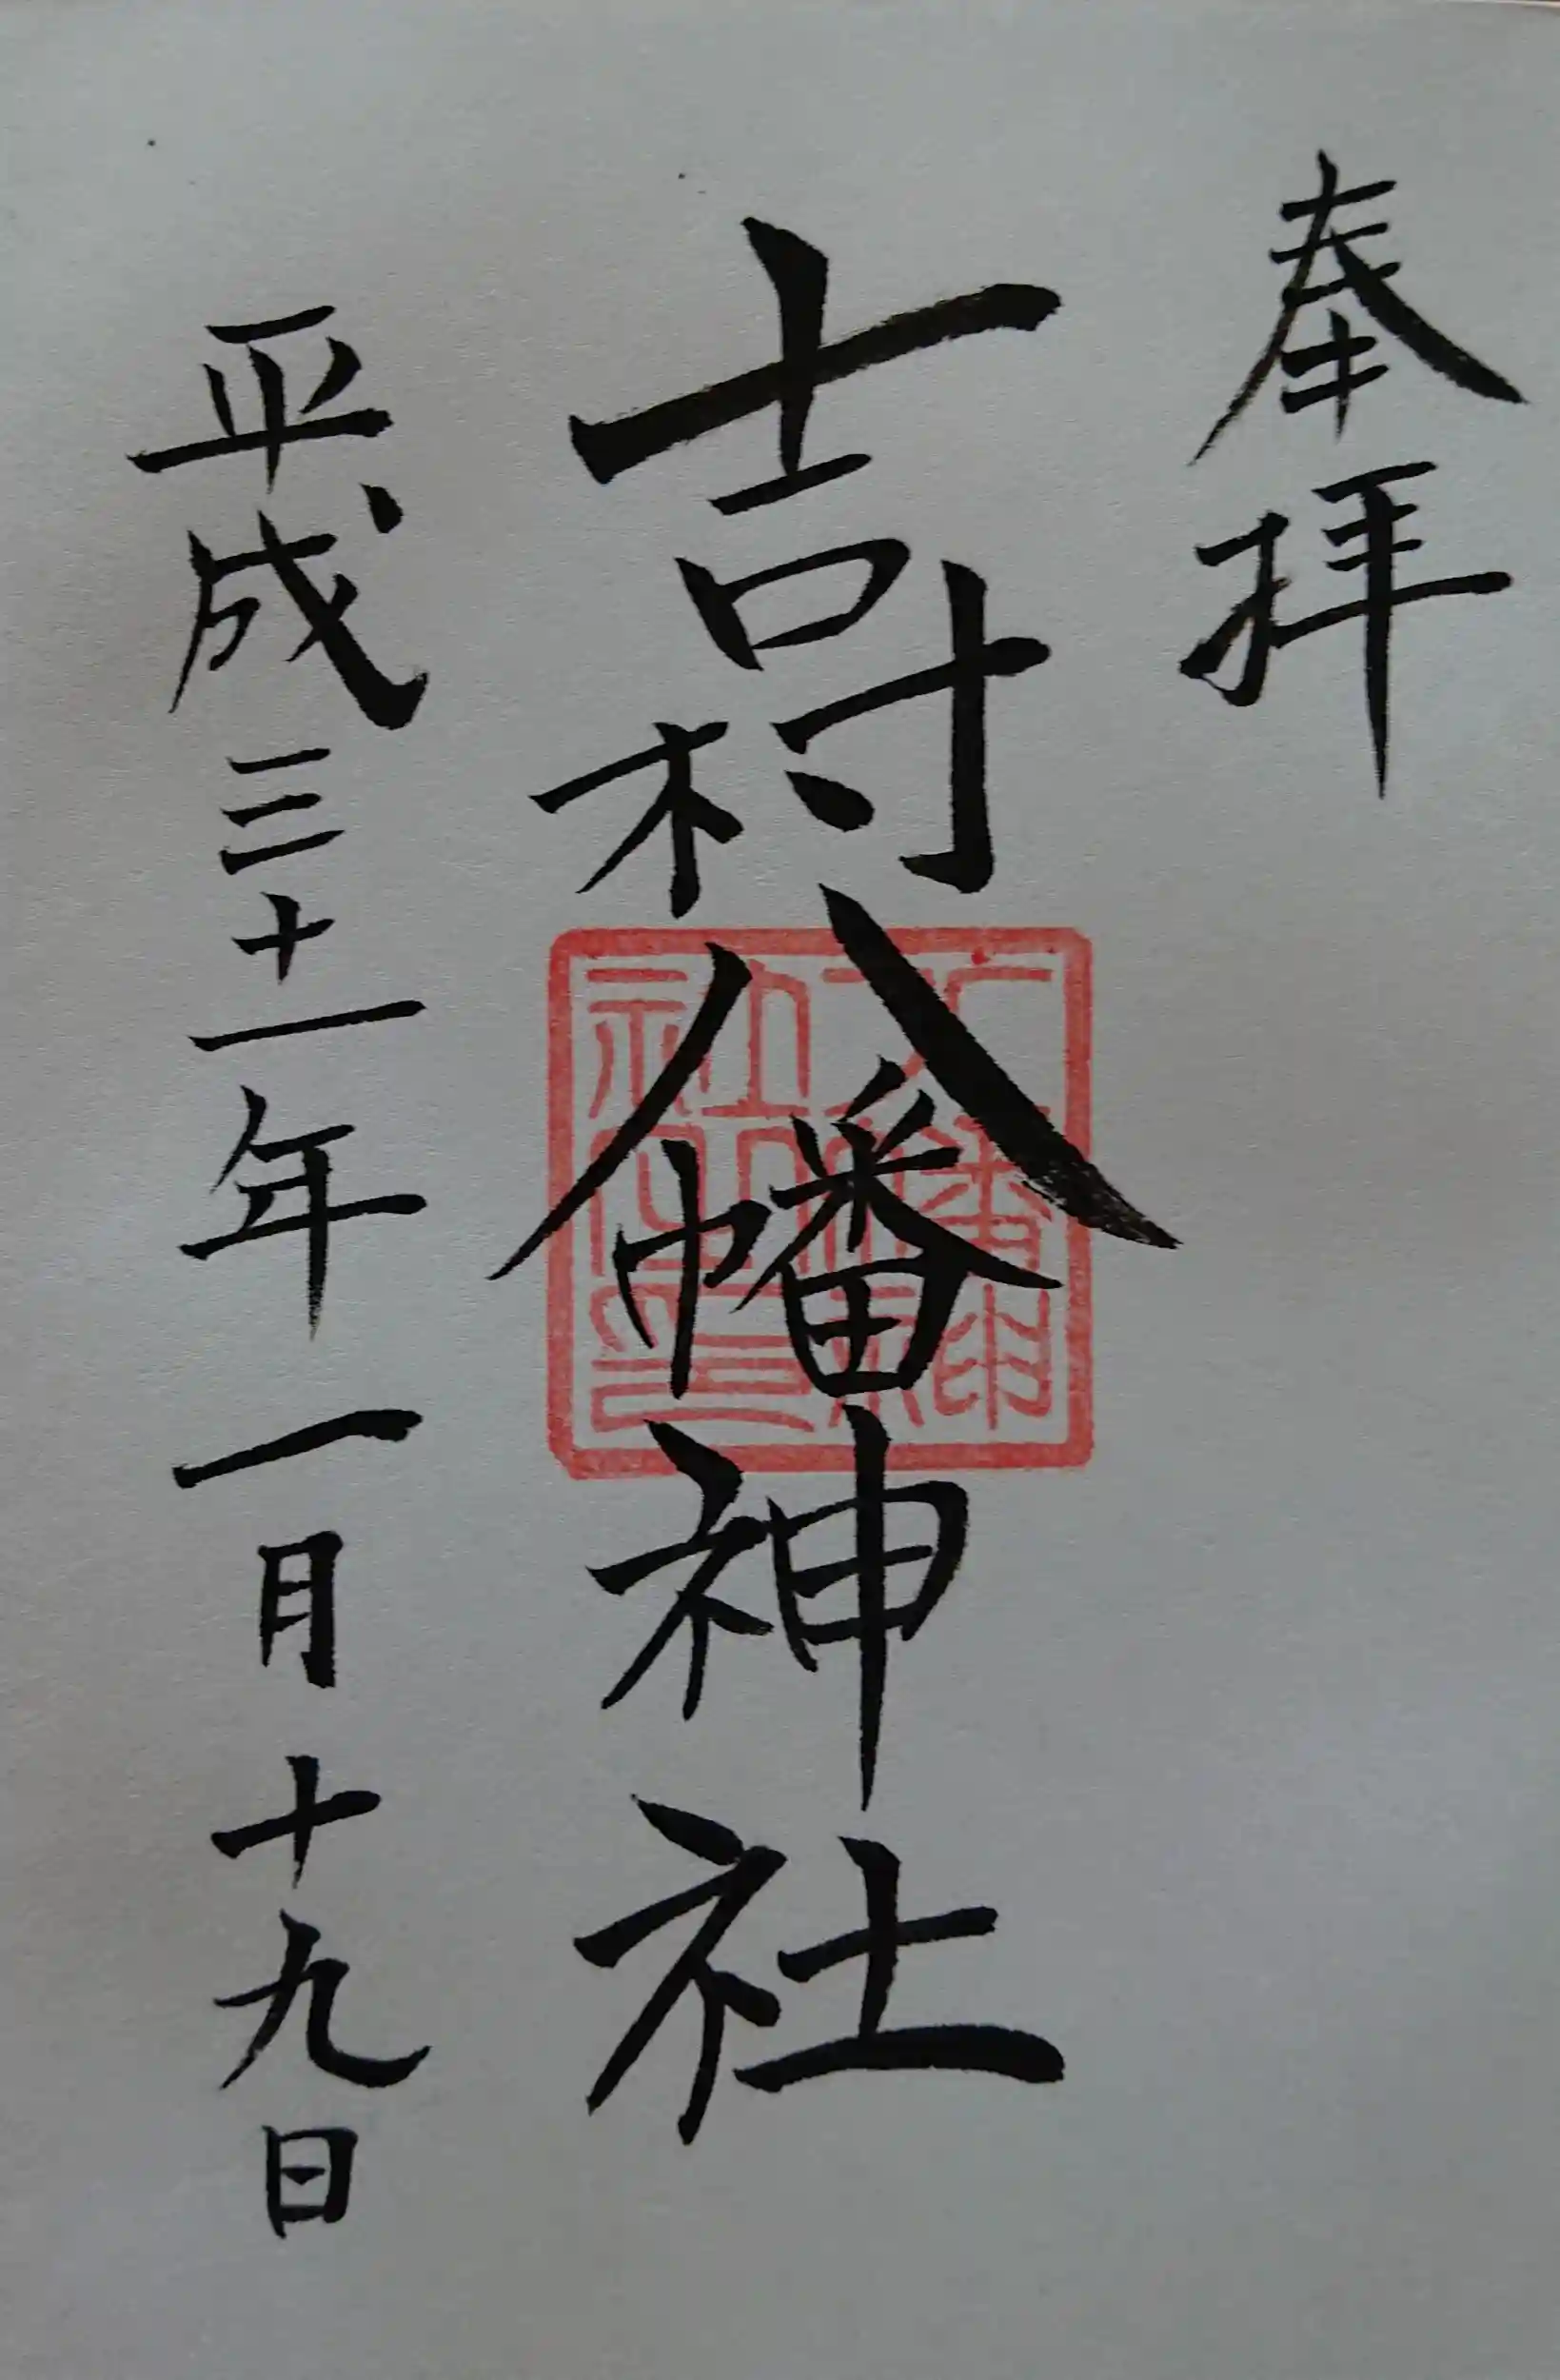 奉拝
吉村八幡神社
平成三十一年一月十九日
八幡神
社之印